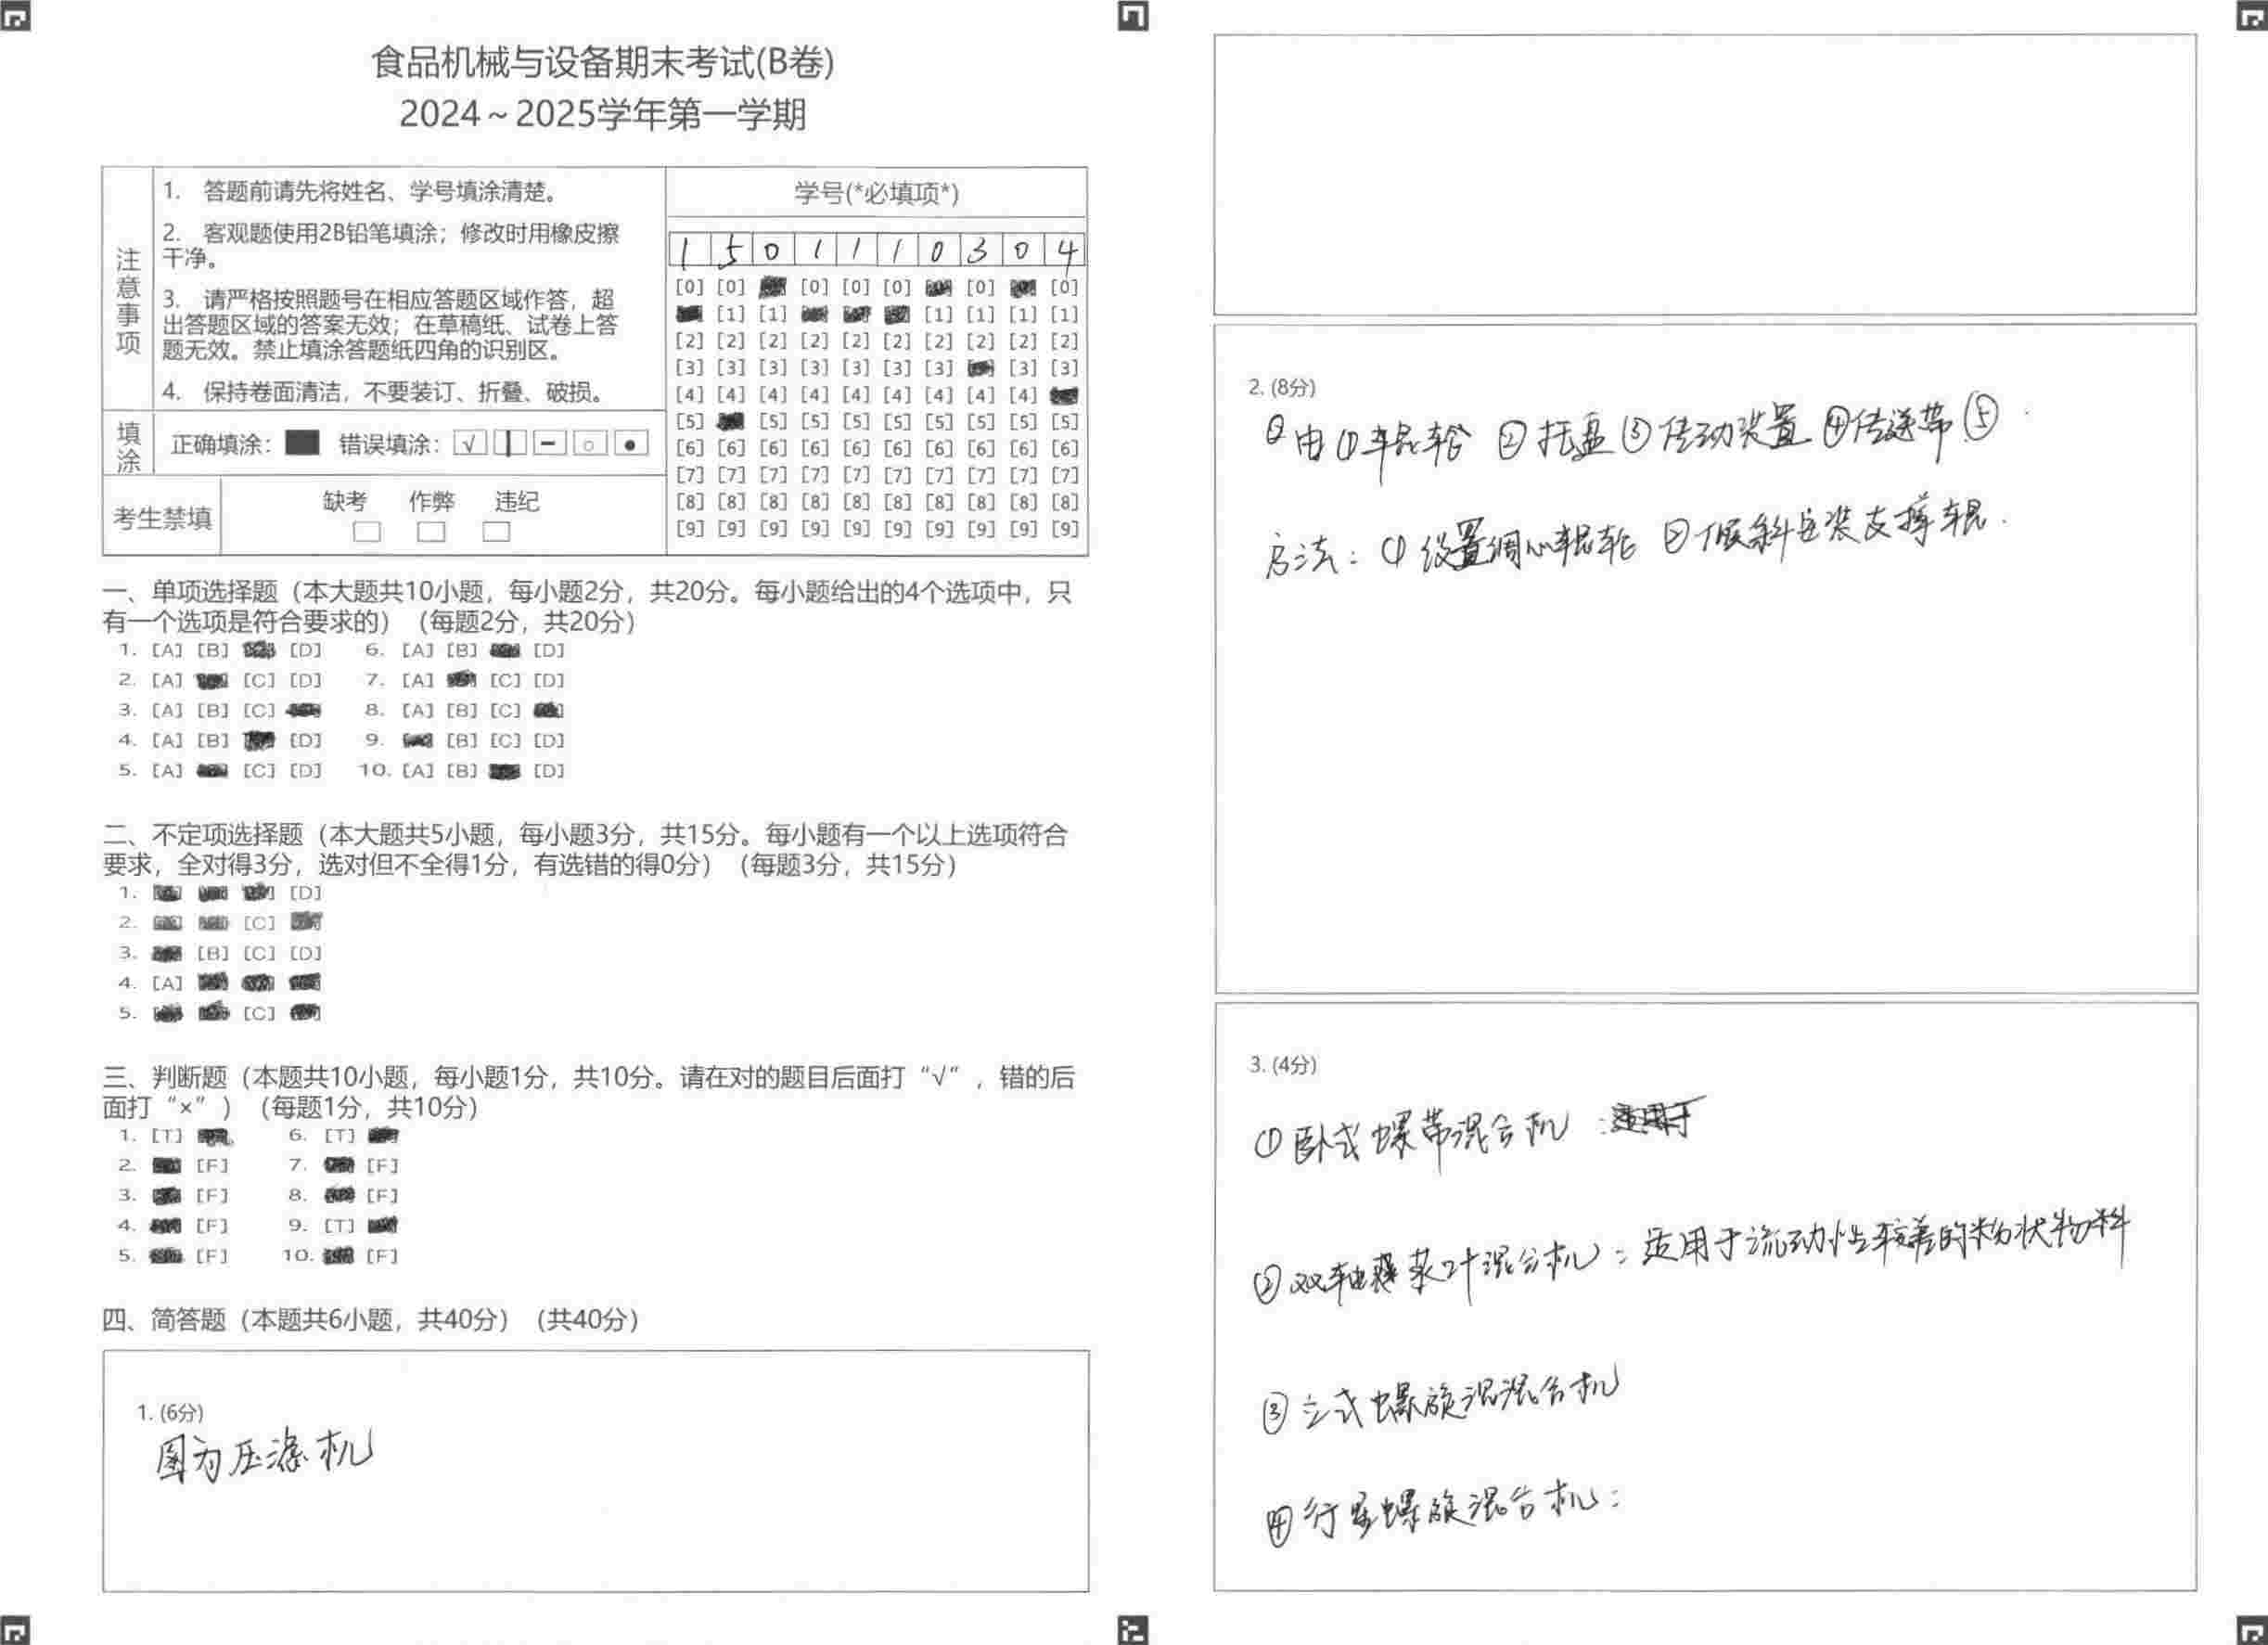 食品机械与设备期末考试(B卷)
2024～2025学年第一学期
注意事项
1. 答题前请先将姓名、学号填涂清楚。
2. 客观题使用2B铅笔填涂；修改时用橡皮擦
干净。
3. 请严格按照题号在相应答题区域作答，超
出答题区域的答案无效；在草稿纸、试卷上答
题无效。禁止填涂答题纸四角的识别区。
4. 保持卷面清洁，不要装订、折叠、破损。
填涂 正确填涂： 错误填涂：
考生禁填 缺考 作弊 违纪
学号(*必填项*)
1 5 0 1 1 1 0 3 0 4
[0] [0] [0] [0] [0] [0] [0]
[1] [1] [1] [1] [1] [1]
[2] [2] [2] [2] [2] [2] [2] [2] [2] [2]
[3] [3] [3] [3] [3] [3] [3] [3] [3]
[4] [4] [4] [4] [4] [4] [4] [4] [4]
[5] [5] [5] [5] [5] [5] [5] [5] [5]
[6] [6] [6] [6] [6] [6] [6] [6] [6] [6]
[7] [7] [7] [7] [7] [7] [7] [7] [7] [7]
[8] [8] [8] [8] [8] [8] [8] [8] [8] [8]
[9] [9] [9] [9] [9] [9] [9] [9] [9] [9]
一、单项选择题（本大题共10小题，每小题2分，共20分。每小题给出的4个选项中，只
有一个选项是符合要求的）（每题2分，共20分）
1. [A] [B] [D] 6. [A] [B] [D]
2. [A] [C] [D] 7. [A] [C] [D]
3. [A] [B] [C] 8. [A] [B] [C]
4. [A] [B] [D] 9. [B] [C] [D]
5. [A] [C] [D] 10. [A] [B] [D]
二、不定项选择题（本大题共5小题，每小题3分，共15分。每小题有一个以上选项符合
要求，全对得3分，选对但不全得1分，有选错的得0分）（每题3分，共15分）
1. [D]
2. [C]
3. [B] [C] [D]
4. [A]
5. [C]
三、判断题（本题共10小题，每小题1分，共10分。请在对的题目后面打“√”，错的后
面打“×”）（每题1分，共10分）
1. [T] 6. [T]
2. [F] 7. [F]
3. [F] 8. [F]
4. [F] 9. [T]
5. [F] 10. [F]
四、简答题（本题共6小题，共40分）（共40分）
1. (6分)
图为压滤机
2. (8分)
由①辊轮 ②托盘 ③传动装置 ④传送带 ⑤
方法：① 设置调心辊轮 ② 倾斜安装支撑辊.
3. (4分)
① 卧式螺带混合机 ：适用于
② 双轴桨叶混合机：适用于流动性较差的粉状物料
③ 立式螺旋混混合机
④ 行星螺旋混合机：